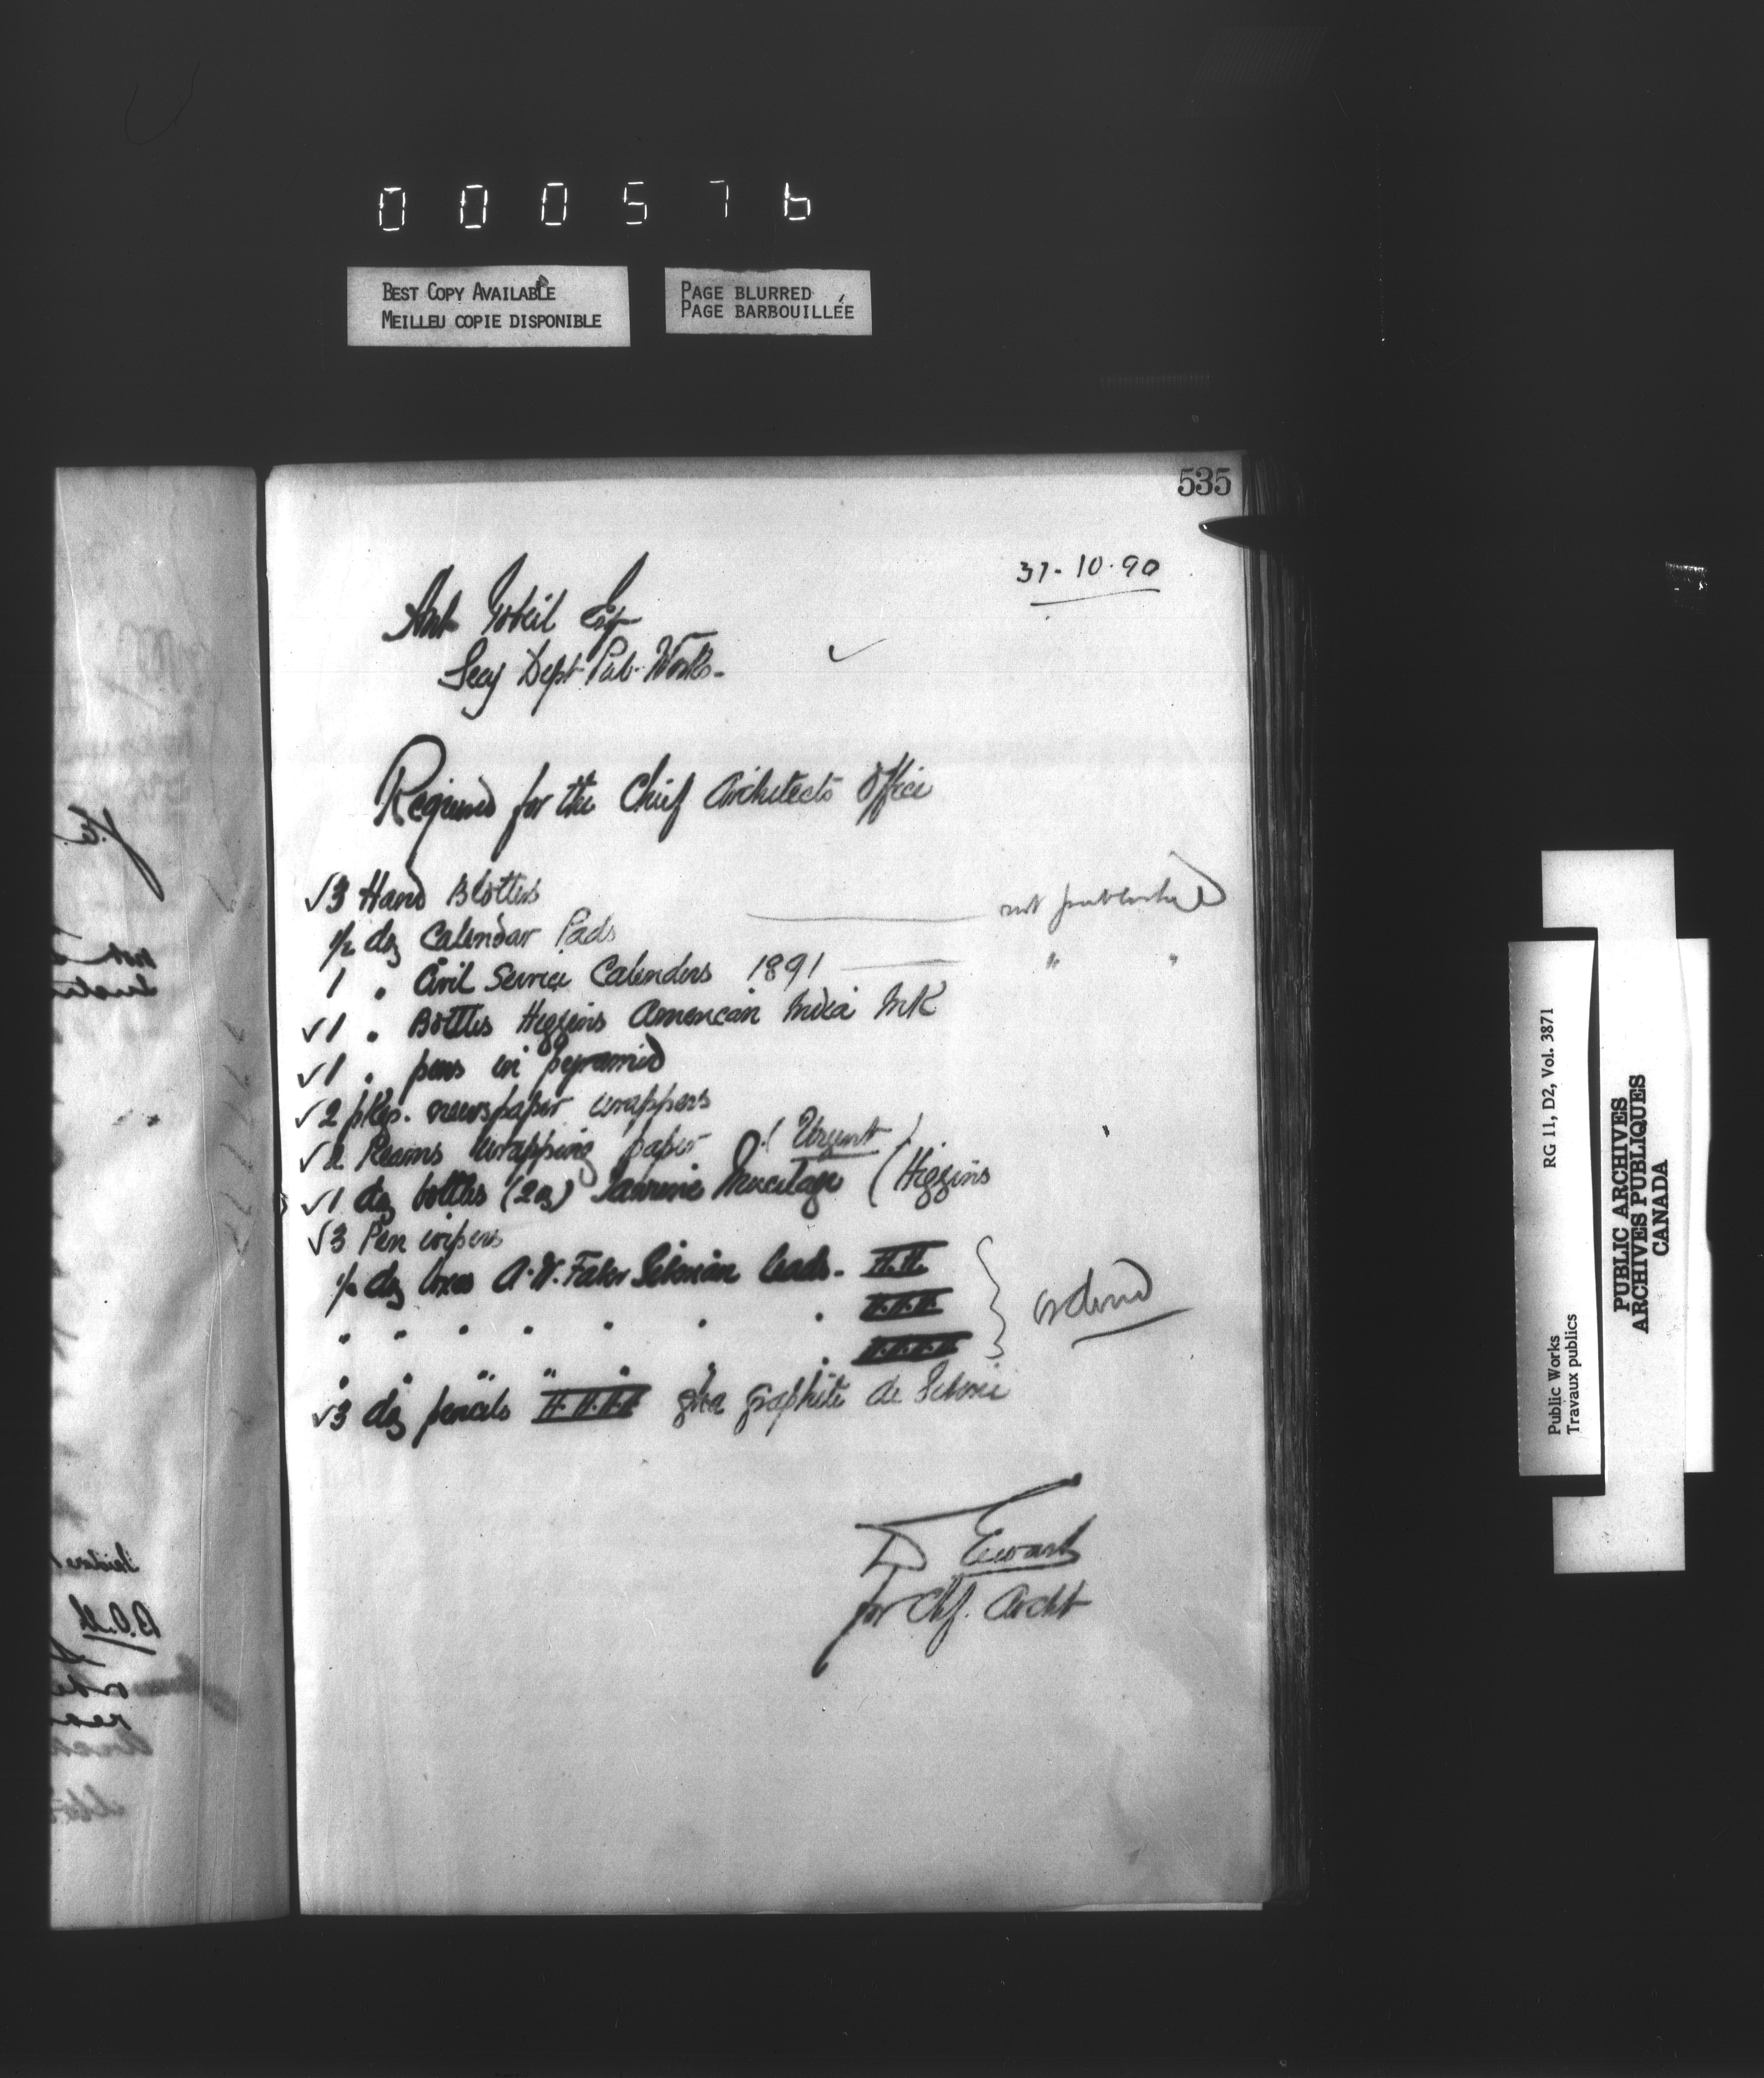 000576
BEST COPY AVAILABLE
MEILLEU COPIE DISPONIBLE
PAGE BLURRED
PAGE BARBOUILLÉE
535
31-10-90
Ant Gobeil Esq
Secy Dept Pub. Works.
Required for the Chief Architects Office
√3 Hand Blotters
½ dz Calendar Pads not published
1 " Civil Service Calenders 1891 " "
√1 " Bottles Higgins American India Ink
√1 " pens in pyramid
√2 pkgs. newspaper wrappers
√2 Reams wrapping paper (Urgent)
√1 dz bottles (2oz) Taurine Mucilage (Higgins
√3 Pen wipers
½ dz boxes A.W. Faber Siberian leads. H.H.
" " " " " " " H.H.H. ordered
" " " " " " " H.H.H.H.
√3 dz pencils H.H.H.H graphite de Siberie
D Ewart
for Chf. Archt
RG 11, D2, Vol. 3871
Public Works
Travaux publics
PUBLIC ARCHIVES
ARCHIVES PUBLIQUES
CANADA